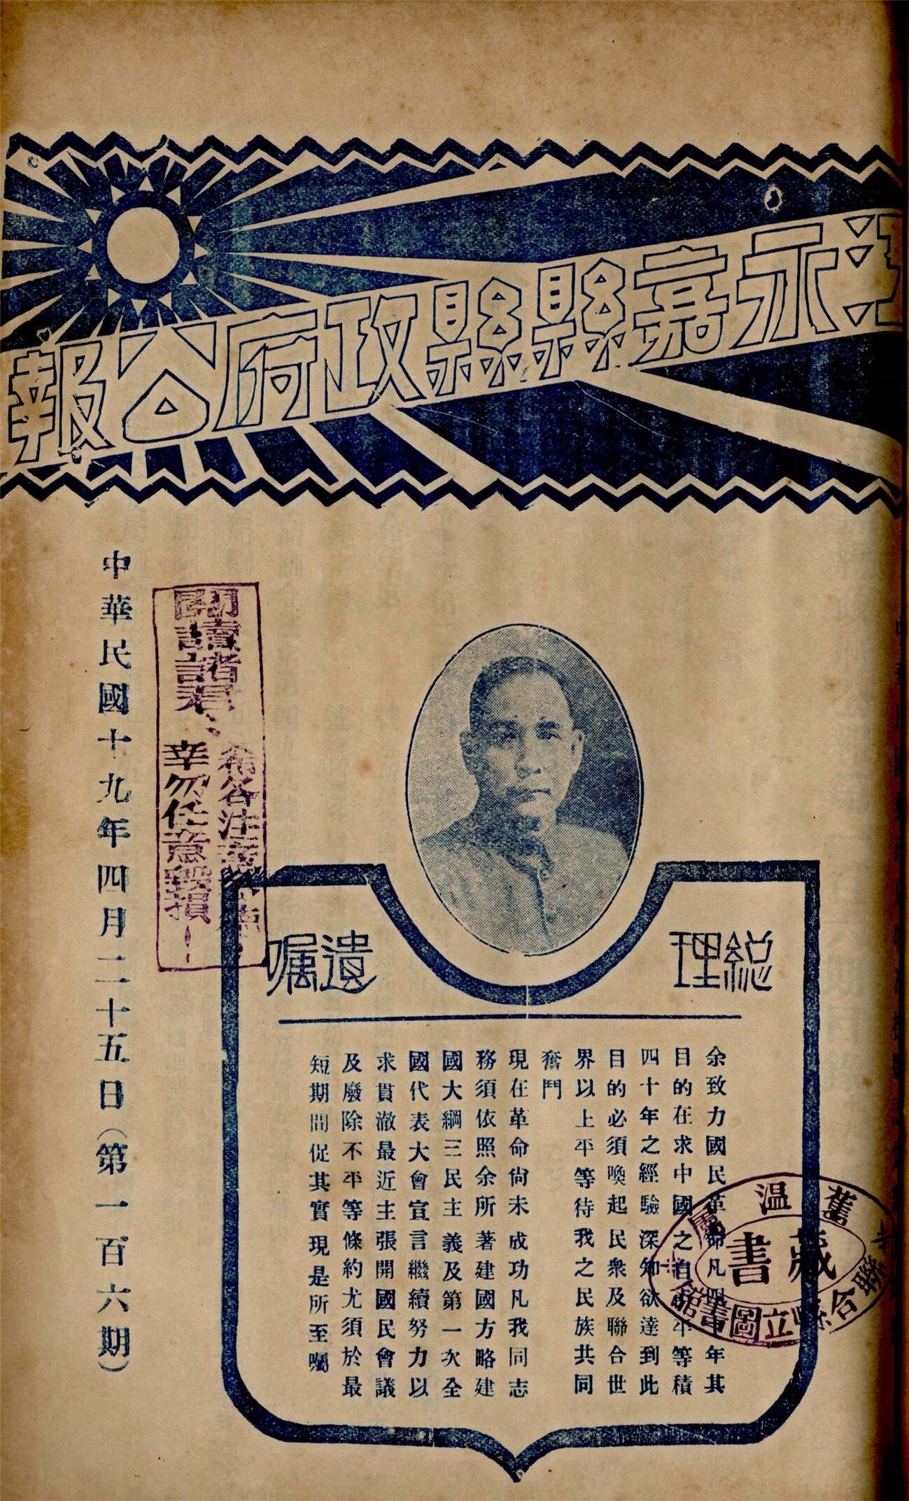 江永嘉縣縣政府公報
總理遺囑
余致力國民革命凡四十年其
目的在求中國之自由平等積
四十年之經驗深知欲達到此
目的必須喚起民衆及聯合世
界以上平等待我之民族共同
奮鬥
現在革命尚未成功凡我同志
務須依照余所著建國方略建
國大綱三民主義及第一次全
國代表大會宣言繼續努力以
求貫澈最近主張開國民會議
及廢除不平等條約尤須於最
短期間促其實現是所至囑
舊溫屬縣聯合縣立圖書館
藏書
閱讀諸君、
希各注意
幸勿任意毀損！
中華民國十九年四月二十五日（第一百六期）